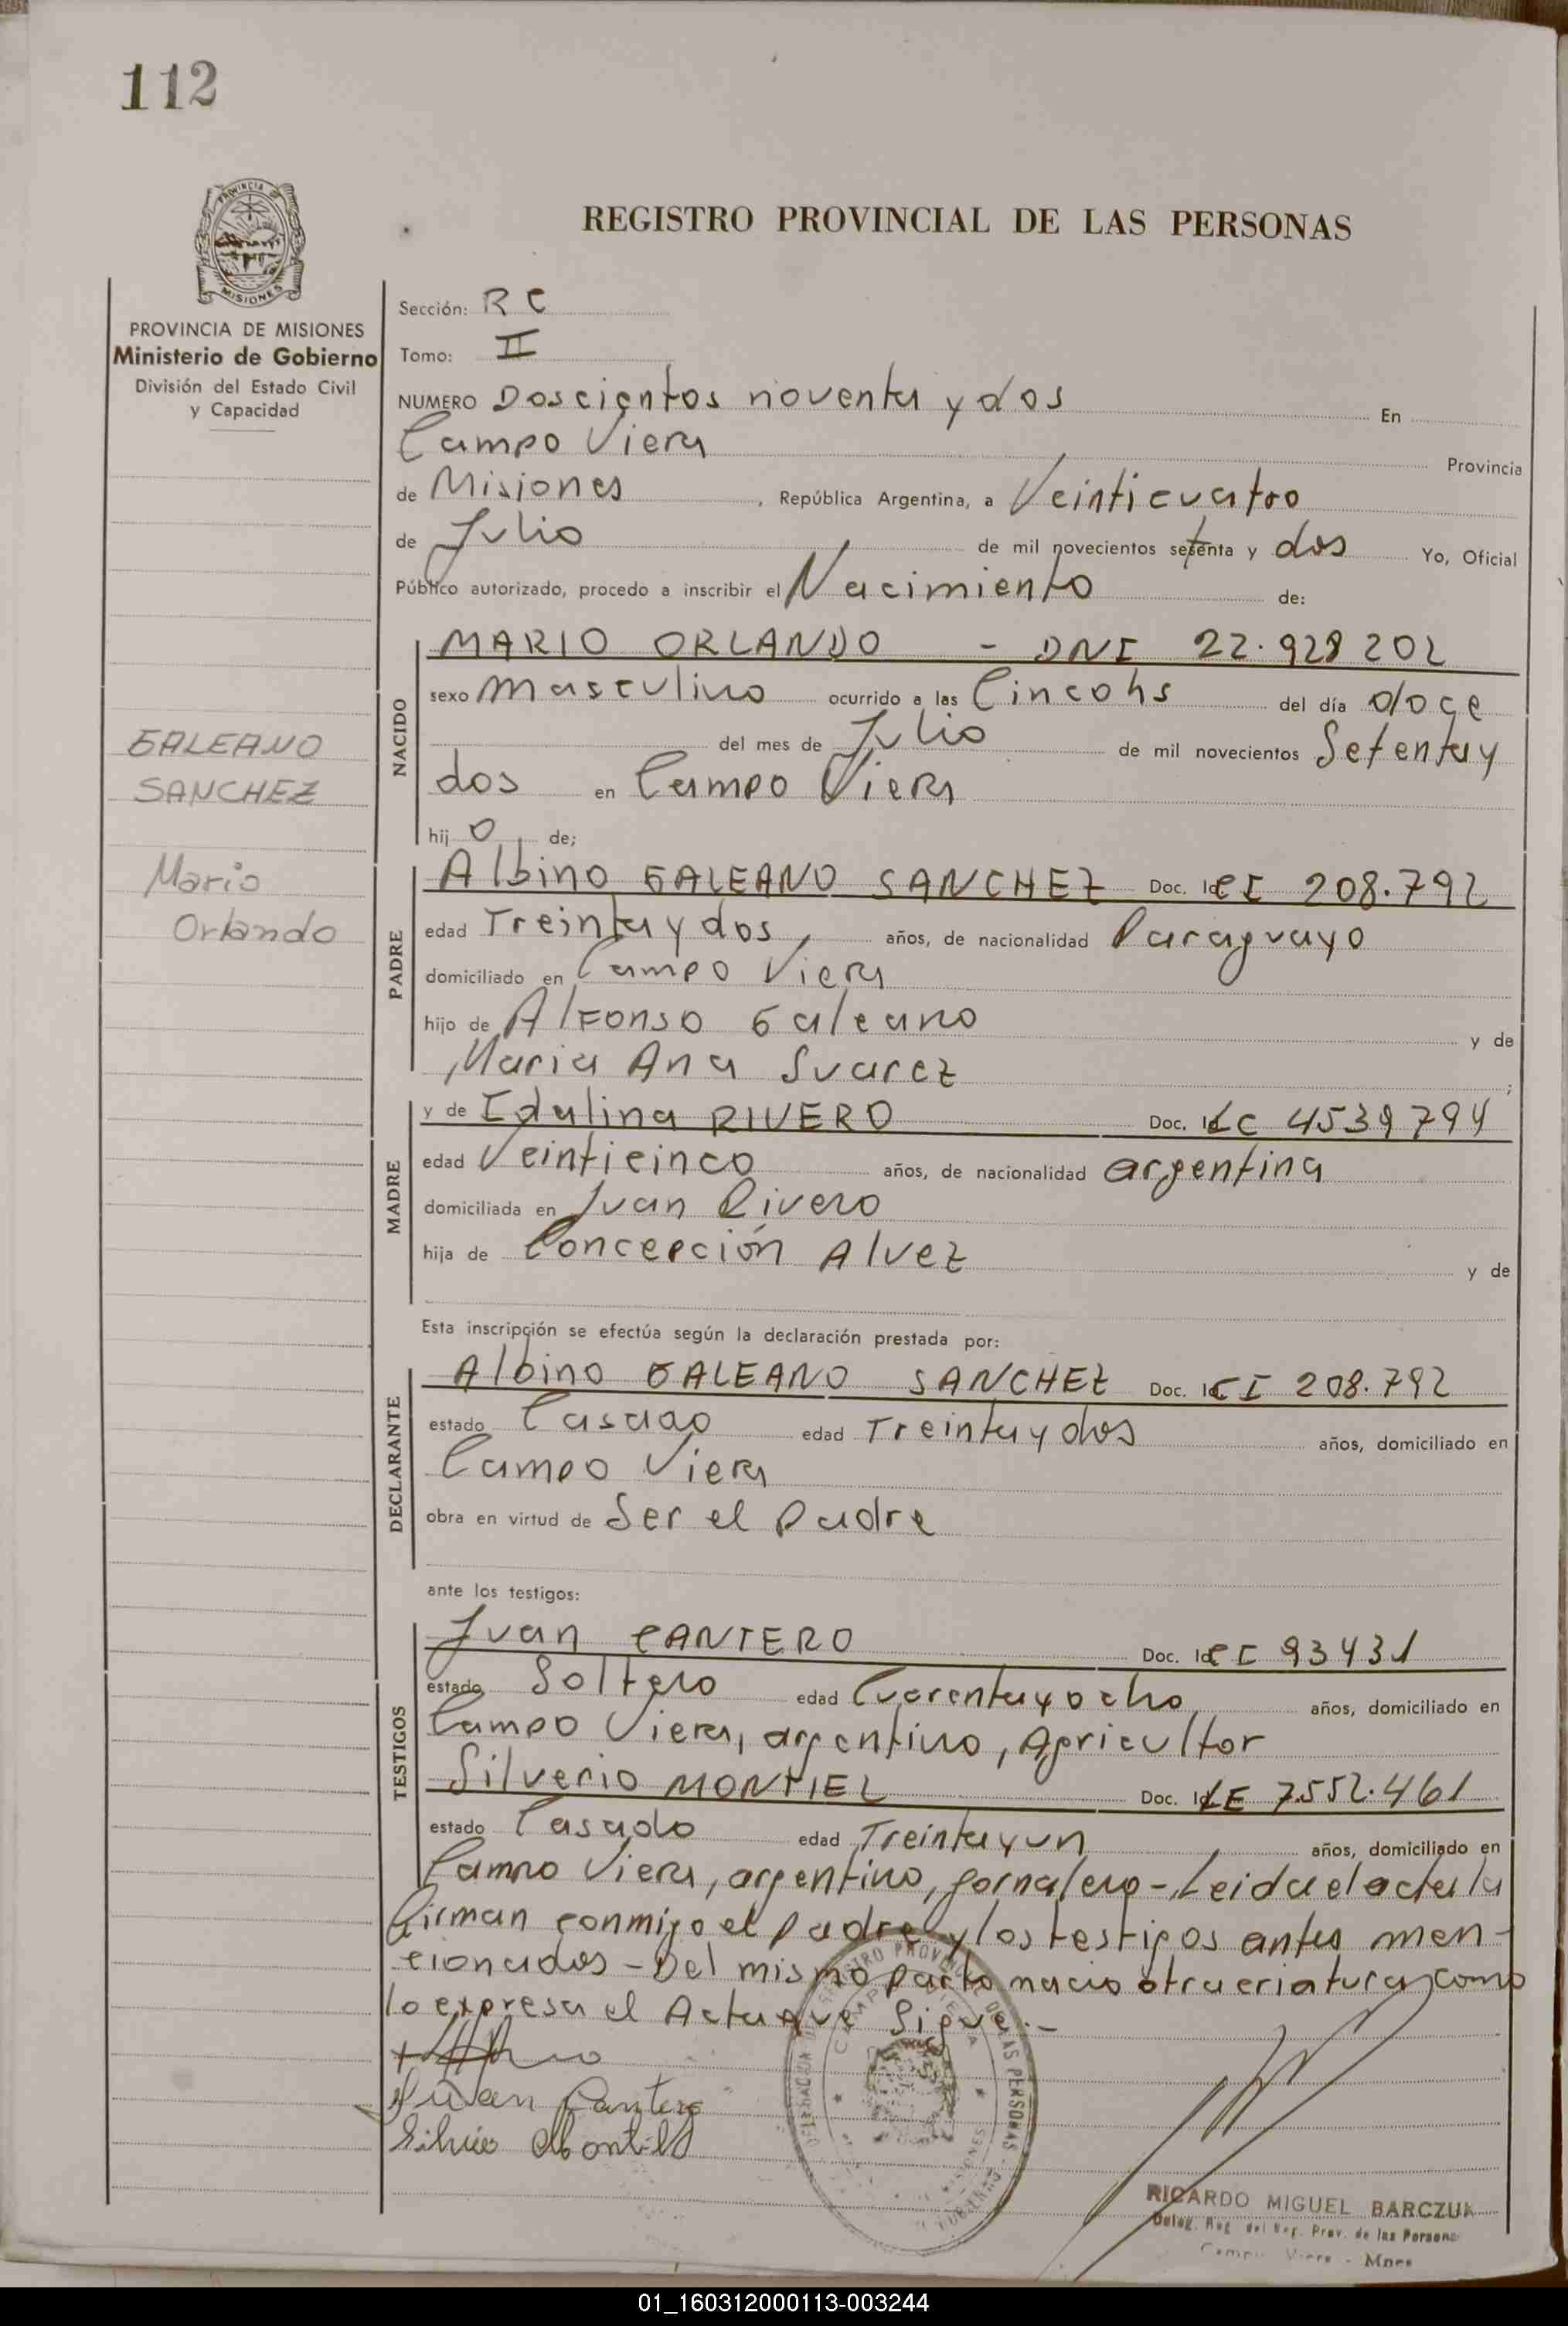 112
PROVINCIA
MISIONES
REGISTRO PROVINCIAL DE LAS PERSONAS
PROVINCIA DE MISIONES
Ministerio de Gobierno
División del Estado Civil
y Capacidad
GALEANO
SANCHEZ
Mario
Orlando
Sección: RC
Tomo: II
NUMERO Doscientos noventa y dos En
Campo Viera Provincia
de Misiones, República Argentina, a Veinticuatro
de Julio de mil novecientos setenta y dos Yo, Oficial
Público autorizado, procedo a inscribir el Nacimiento de:
NACIDO
MARIO ORLANDO - DNI 22.928 202
sexo masculino ocurrido a las Cinco hs del día doce
del mes de Julio de mil novecientos Setenta y
dos en Campo Viera
hij o de;
PADRE
Albino GALEANO SANCHEZ Doc. Id CI 208.792
edad Treinta y dos, años, de nacionalidad Paraguayo
domiciliado en Campo Viera
hijo de Alfonso Galeano y de
Maria Ana Suarez ;
MADRE
y de Idalina RIVERO Doc. Id LC 4539794
edad Veinticinco años, de nacionalidad argentina
domiciliada en Juan Rivero
hija de Concepción Alvez y de
Esta inscripción se efectúa según la declaración prestada por:
DECLARANTE
Albino GALEANO SANCHEZ Doc. Id CI 208.792
estado Casado edad Treinta y dos años, domiciliado en
Campo Viera
obra en virtud de Ser el Padre
ante los testigos:
TESTIGOS
Juan CANTERO Doc. Id CI 93431
estado Soltero edad Cuarenta y ocho, años, domiciliado en
Campo Viera, argentino, Agricultor
Silverio MONTIEL Doc. Id LE 7.552.461
estado Casado edad Treinta y un años, domiciliado en
Campo Viera, argentino, jornalero - Leida el acta la
firman conmigo el padre y los testigos antes men-
cionados - Del mismo parto nacio otra criatura, como
lo expresa el Acta que Sigue.-
Juan Cantero
Silverio Montiel
RICARDO MIGUEL BARCZUK
Deleg. Reg. del Reg. Prov. de las Personas
Campo Viera - Mnes
01_160312000113-003244